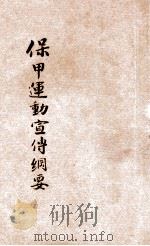 保甲運動宣傳綱要
mtoou.info